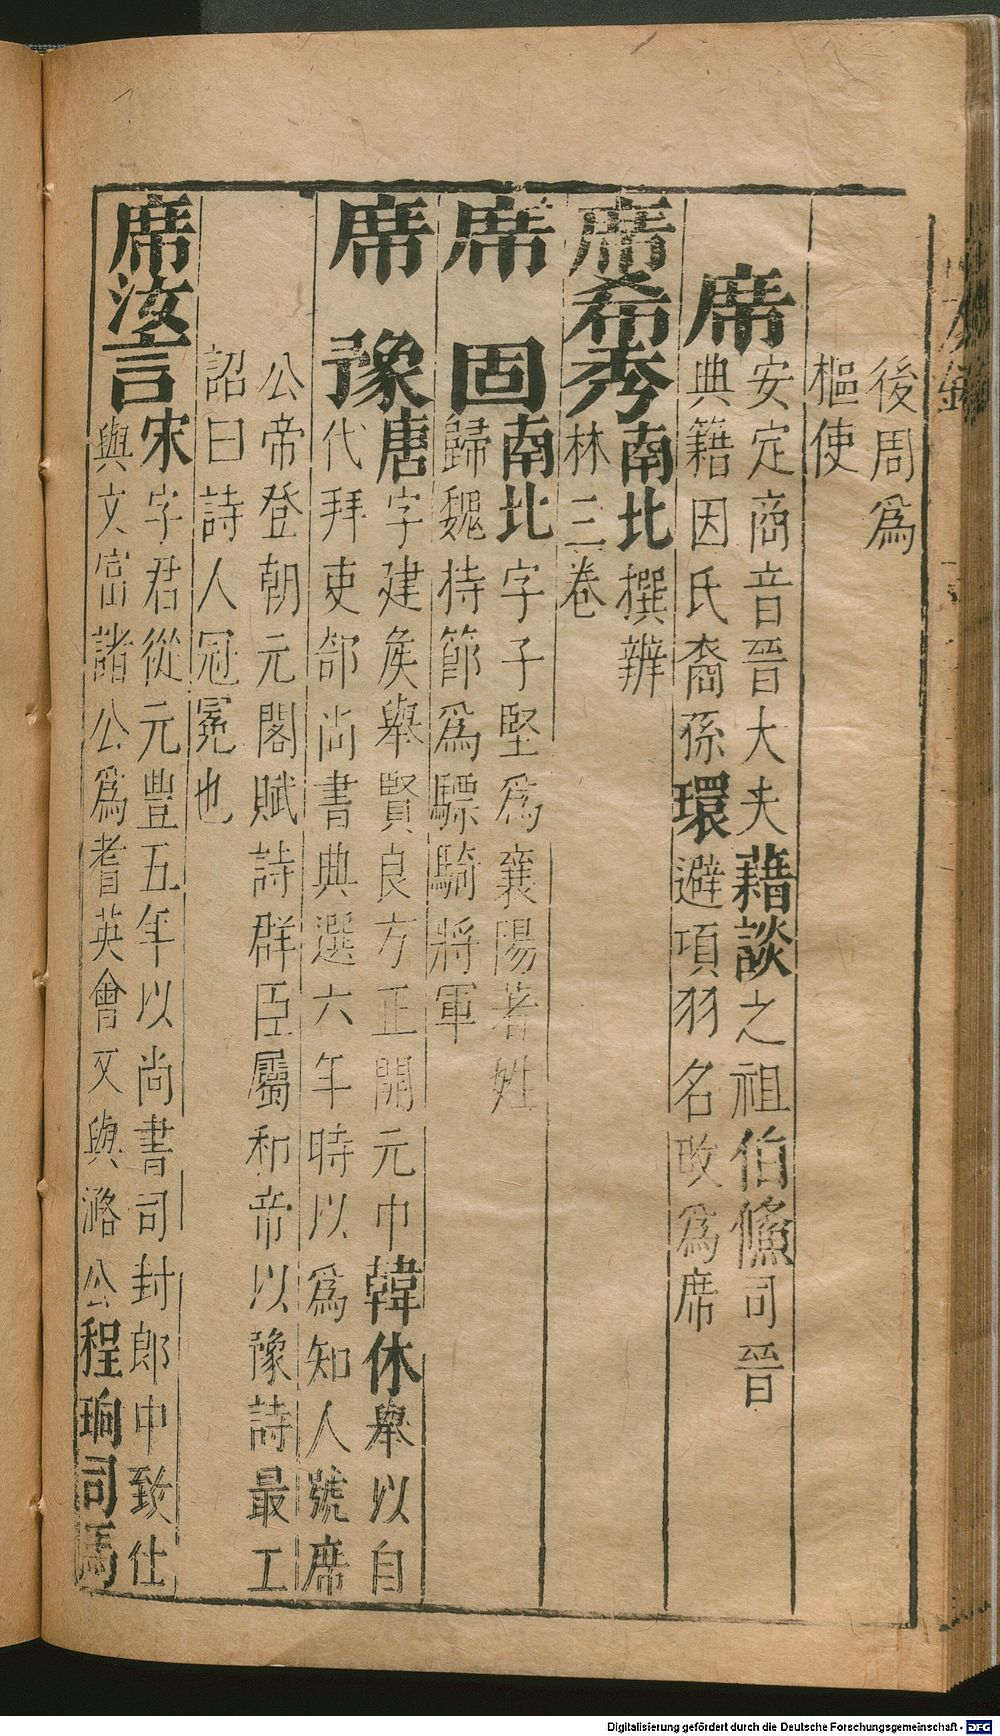 後周爲
樞使
席
安定商音晉大夫藉談之祖伯儵司晉
典籍因氏裔孫環避項羽名改爲席
席希秀
南北撰辨
林三卷
席固
南北字子堅爲襄陽著姓
歸魏持節爲驃騎將軍
席豫
唐字建矦舉賢良方正開元中韓休舉以自
代拜吏部尚書典選六年時以爲知人號席
公帝登朝元閣賦詩群臣屬和帝以豫詩最工
詔曰詩人冠冕也
席汝言
宋字君從元豐五年以尚書司封郎中致仕
與文富諸公爲耆英會又與潞公程珦司馬
Digitalisierung gefördert durch die Deutsche Forschungsgemeinschaft - DFG